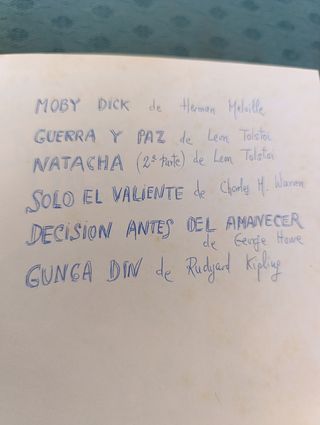 MOBY DICK de Herman Melville
GUERRA Y PAZ de Leon Tolstoi
NATACHA (2ª Parte) de Leon Tolstoi
SOLO EL VALIENTE de Charles M. Warren
DECISION ANTES DEL AMANECER
de George Howe
GUNGA DIN de Rudyard Kipling